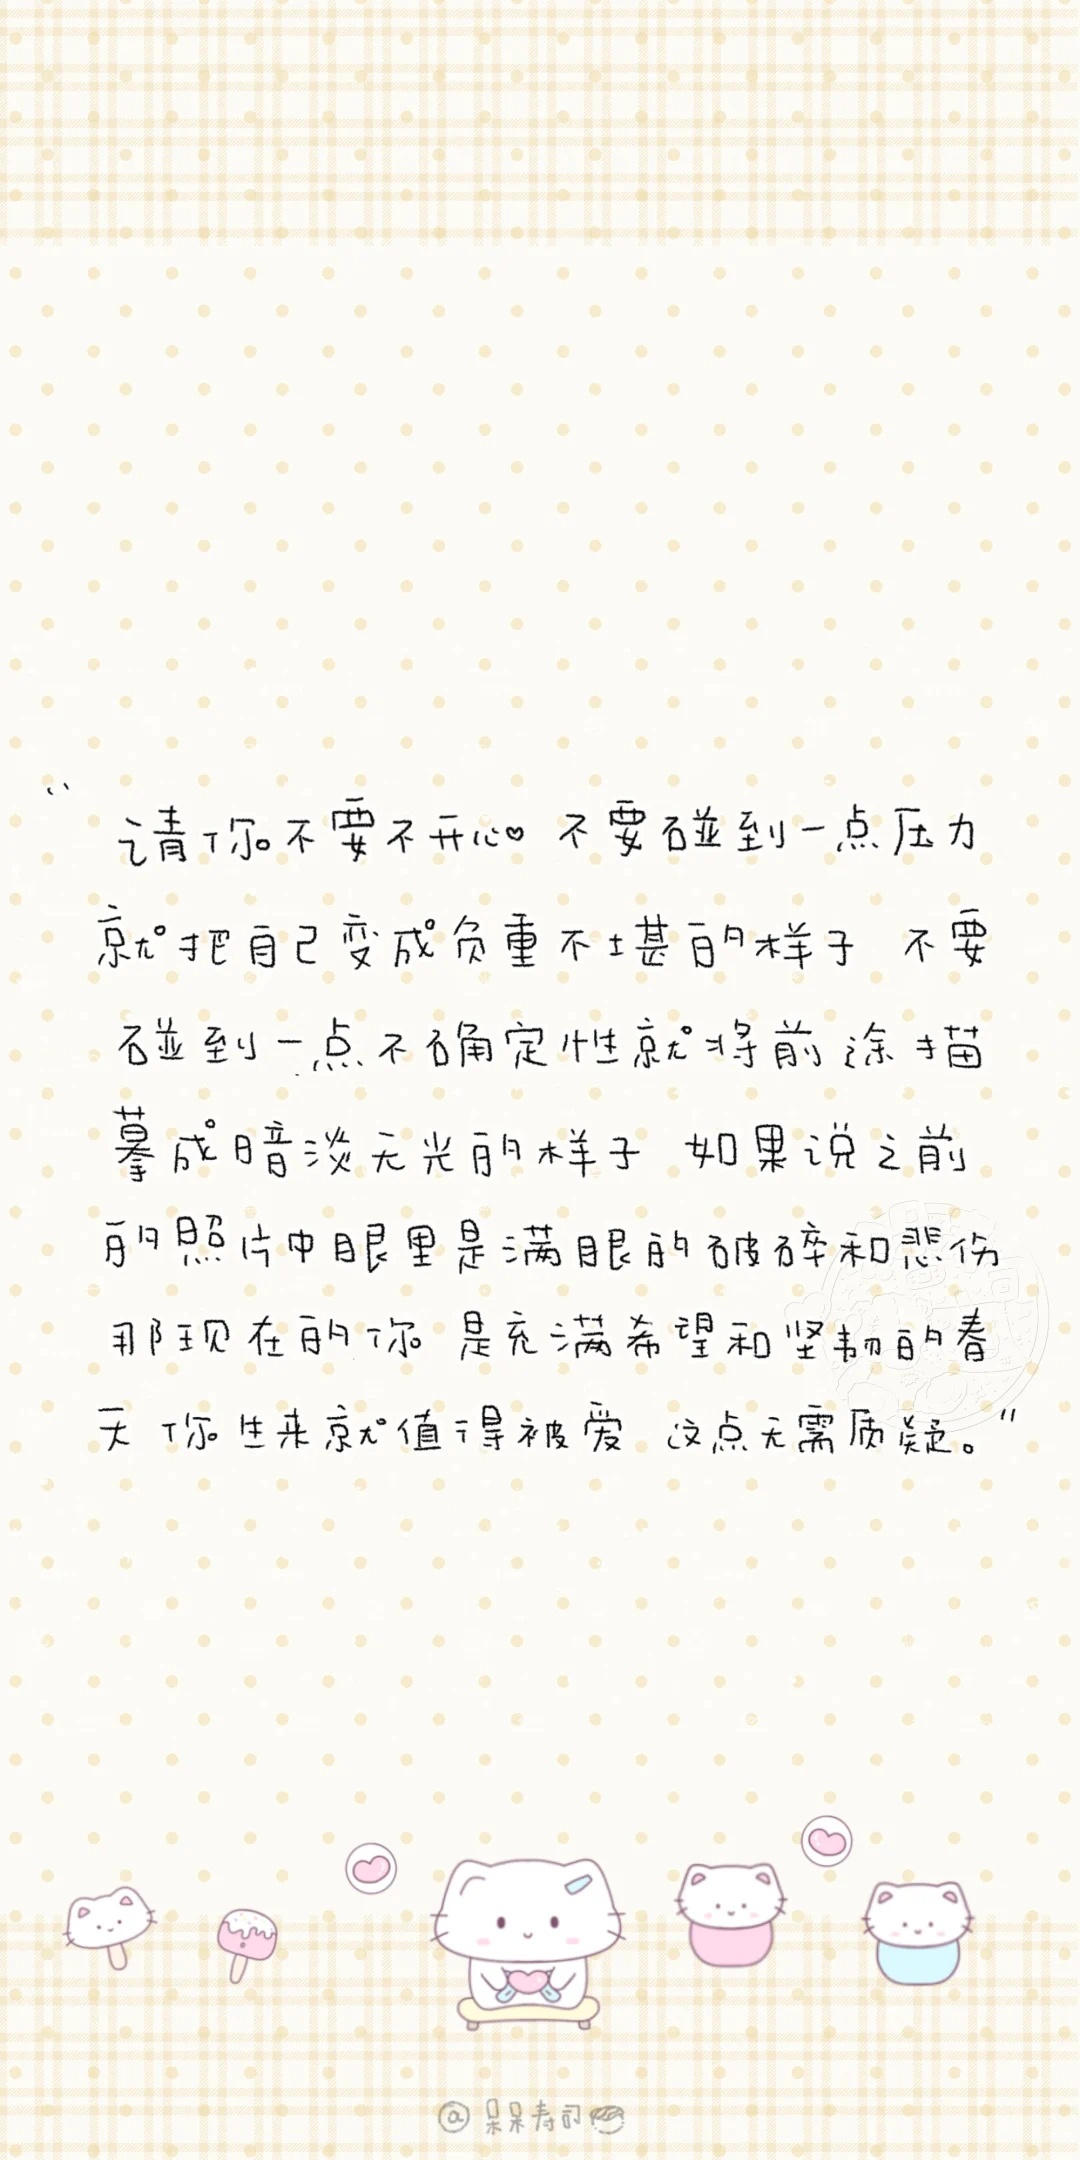 “请你不要不开心 不要碰到一点压力
就把自己变成负重不堪的样子 不要
碰到一点不确定性就将前途描
摹成暗淡无光的样子 如果说之前
的照片中眼里是满眼的破碎和悲伤
那现在的你 是充满希望和坚韧的春
天 你生来就值得被爱 这点无需质疑。”
@呆呆寿司